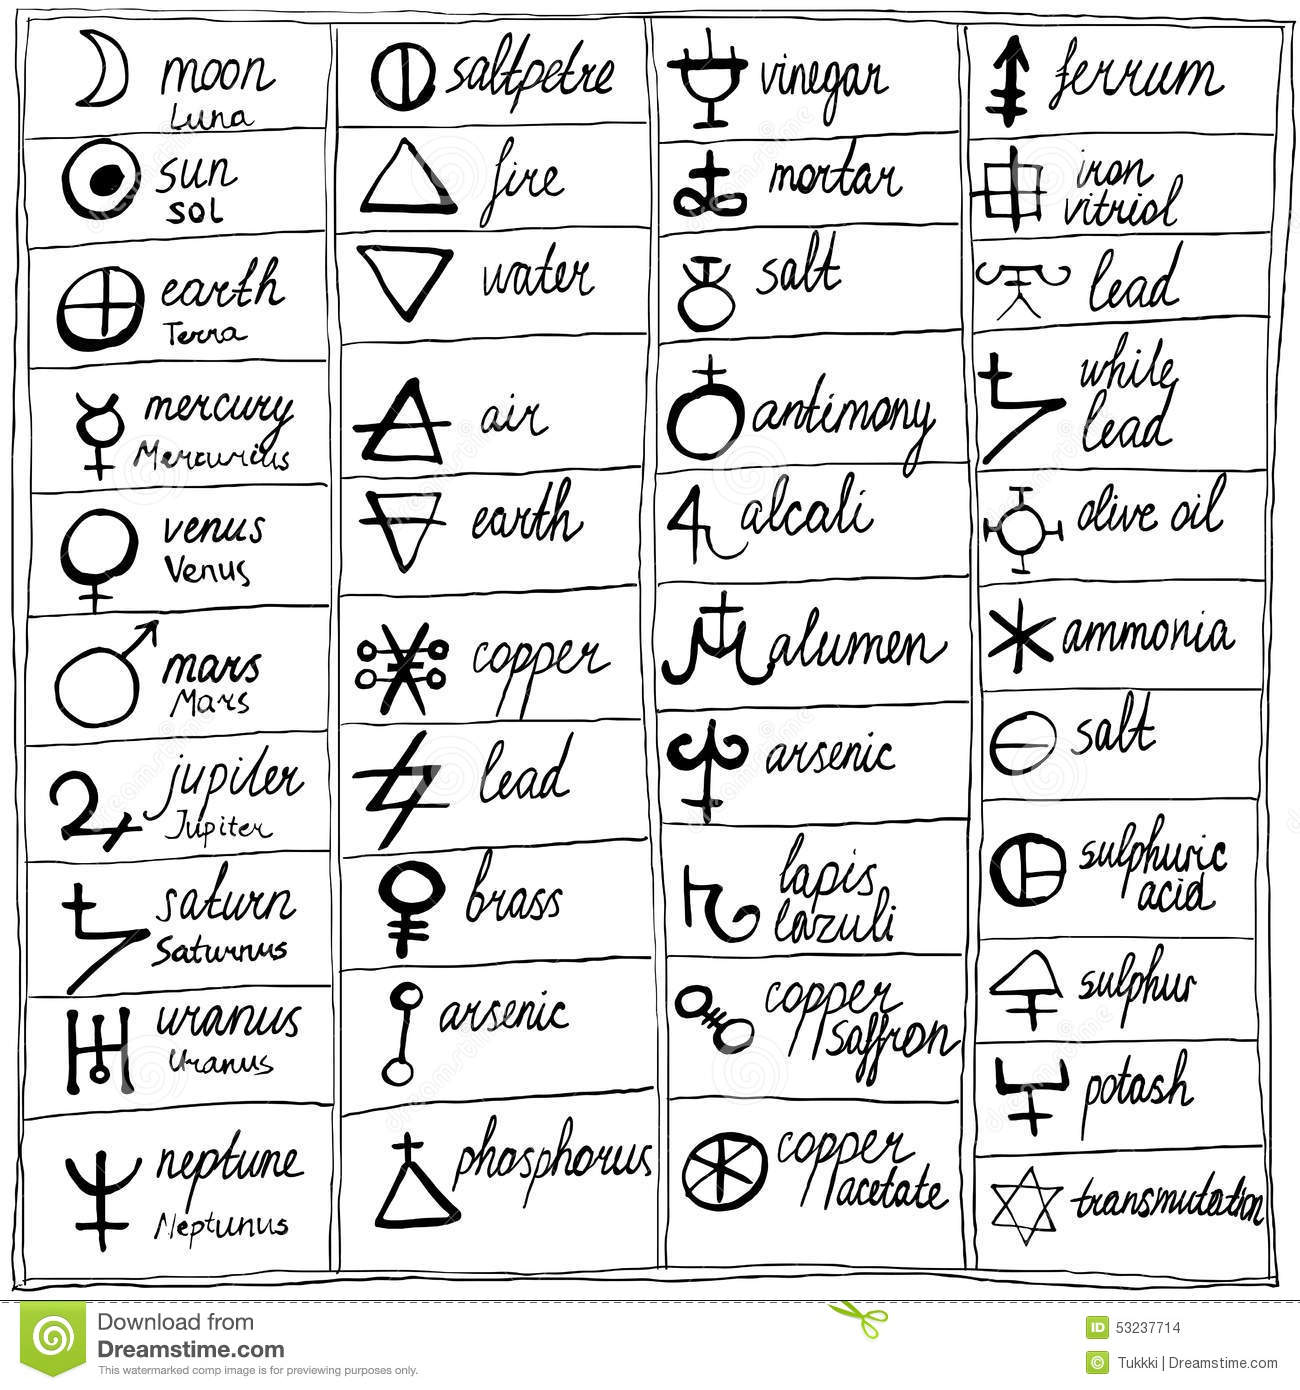 moon
Luna
sun
sol
earth
Terra
mercury
Mercurius
venus
Venus
mars
Mars
jupiter
Jupiter
saturn
Saturnus
uranus
Uranus
neptune
Neptunus
saltpetre
fire
water
air
earth
copper
lead
brass
arsenic
phosphorus
vinegar
mortar
salt
antimony
alcali
alumen
arsenic
lapis
lazuli
copper
saffron
copper
acetate
ferrum
iron
vitriol
lead
while
lead
olive oil
ammonia
salt
sulphuric
acid
sulphur
potash
transmutation
Download from
Dreamstime.com
This watermarked comp image is for previewing purposes only.
ID 53237714
© Tukkki | Dreamstime.com